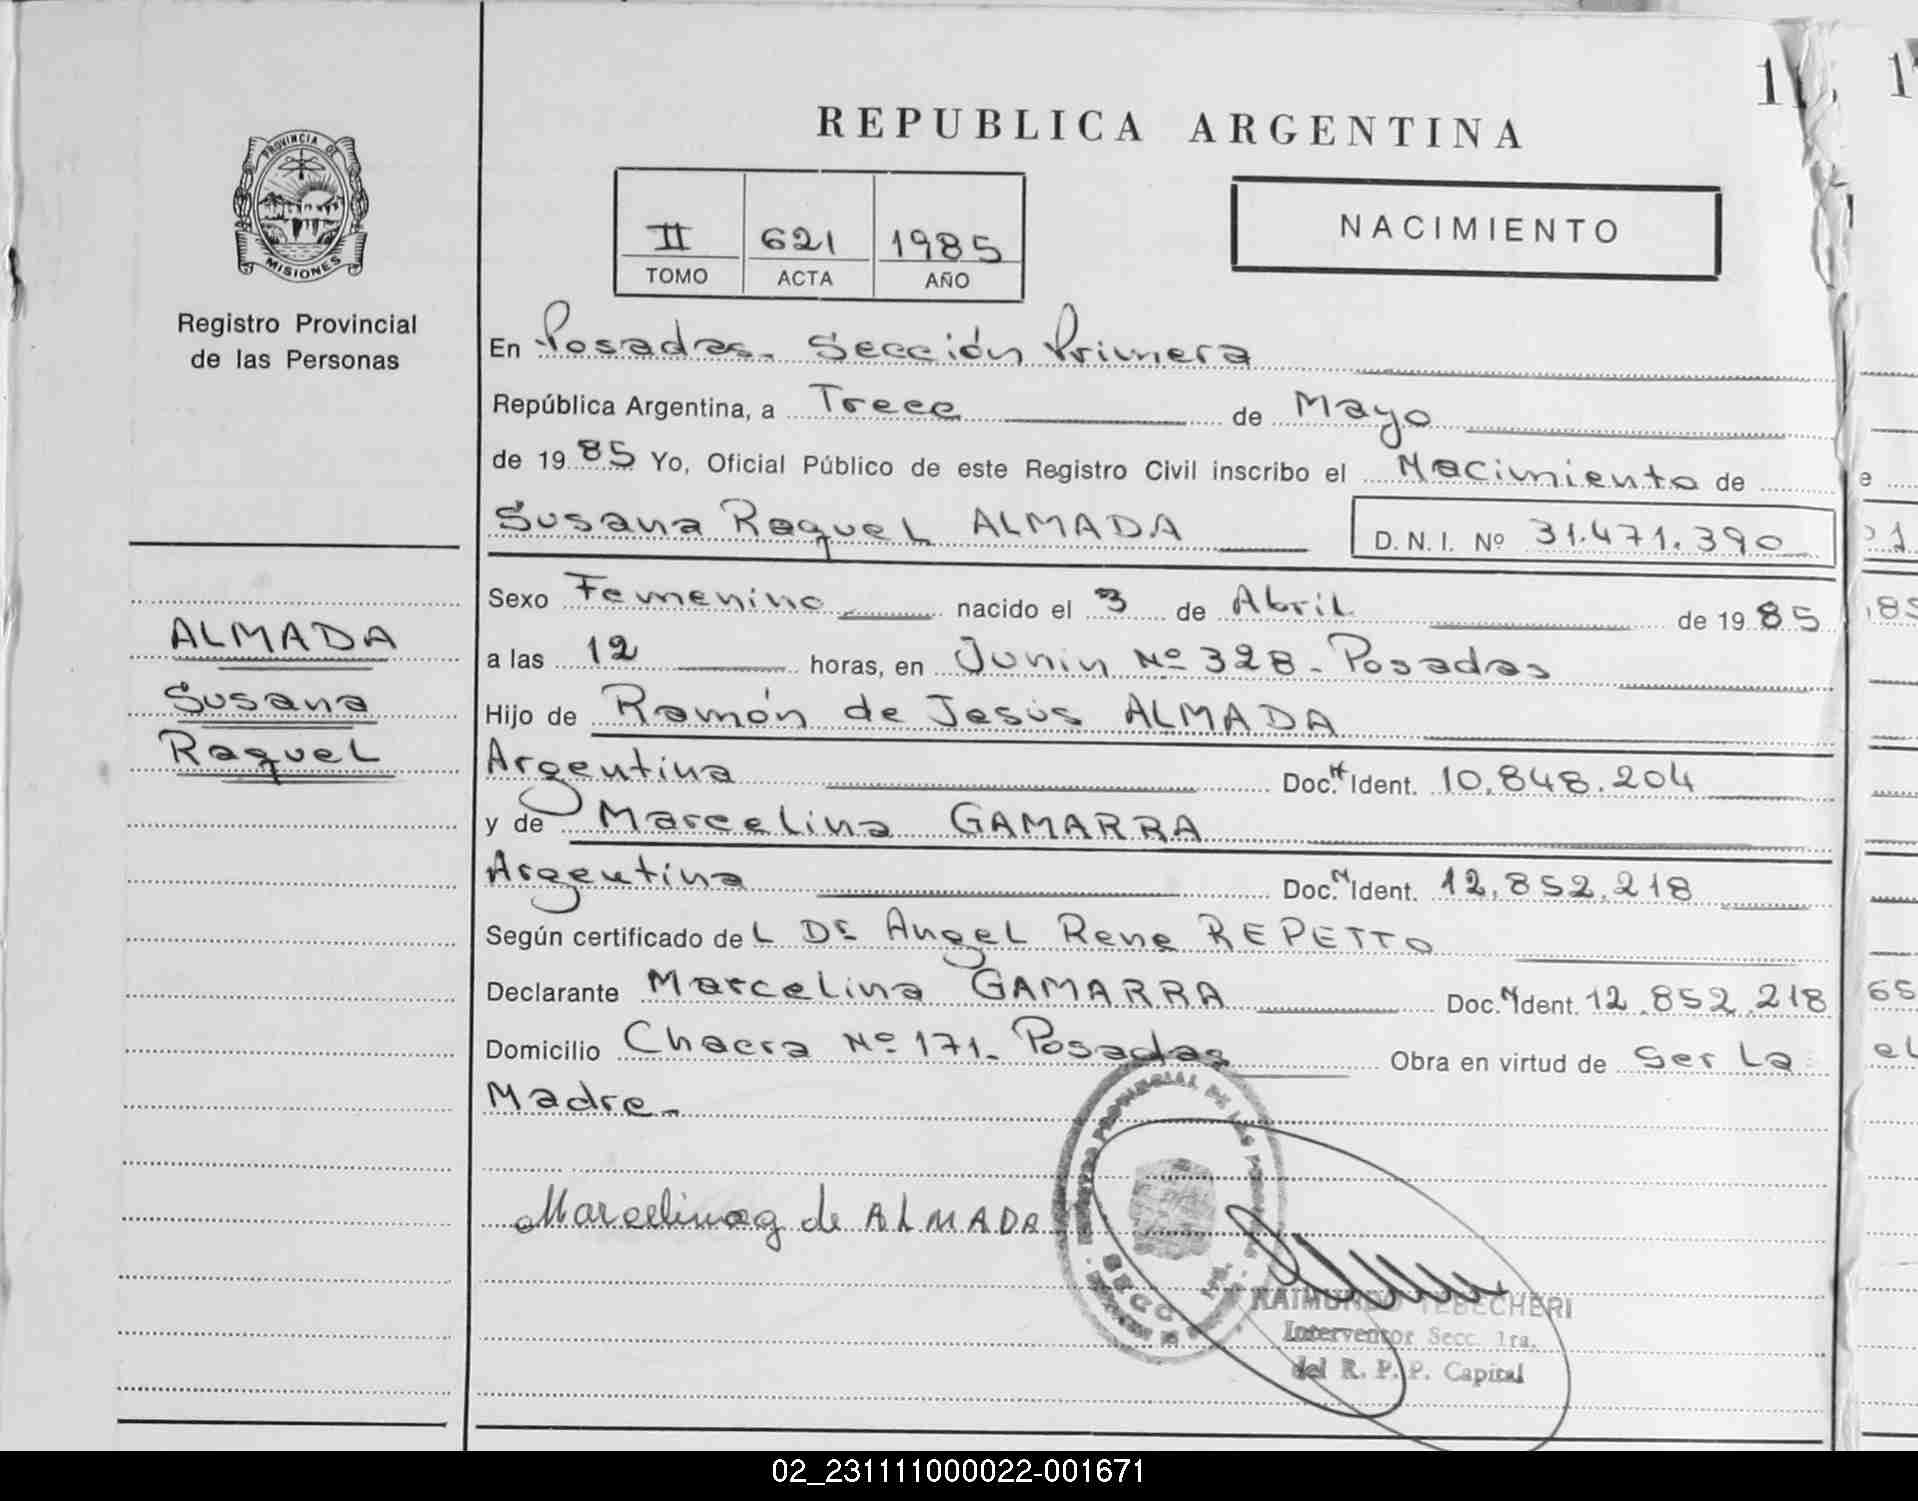 11
REPUBLICA ARGENTINA
PROVINCIA DE
MISIONES
Registro Provincial
de las Personas
II 621 1985
TOMO ACTA AÑO
NACIMIENTO
En Posadas. Sección Primera
República Argentina, a Trece de Mayo
de 1985 Yo, Oficial Público de este Registro Civil inscribo el Nacimiento de
Susana Raquel ALMADA D.N.I. Nº 31.471.390
Sexo Femenino nacido el 3 de Abril de 1985
a las 12 horas, en Junin Nº 328. Posadas
Hijo de Ramón de Jesús ALMADA
Argentina Doc. Ident. 10.848.204
y de Marcelina GAMARRA
Argentina Doc. Ident. 12.852.218
Según certificado del DE Angel Rene REPETTO
Declarante Marcelina GAMARRA Doc. Ident. 12.852.218
Domicilio Chacra Nº 171. Posadas Obra en virtud de Ser La
Madre.
ALMADA
Susana
Raquel
Marcelina g de ALMADA
RAIMUNDO TEBECHERI
Interventor Secc. 1ra.
del R. P. P. Capital
02_231111000022-001671